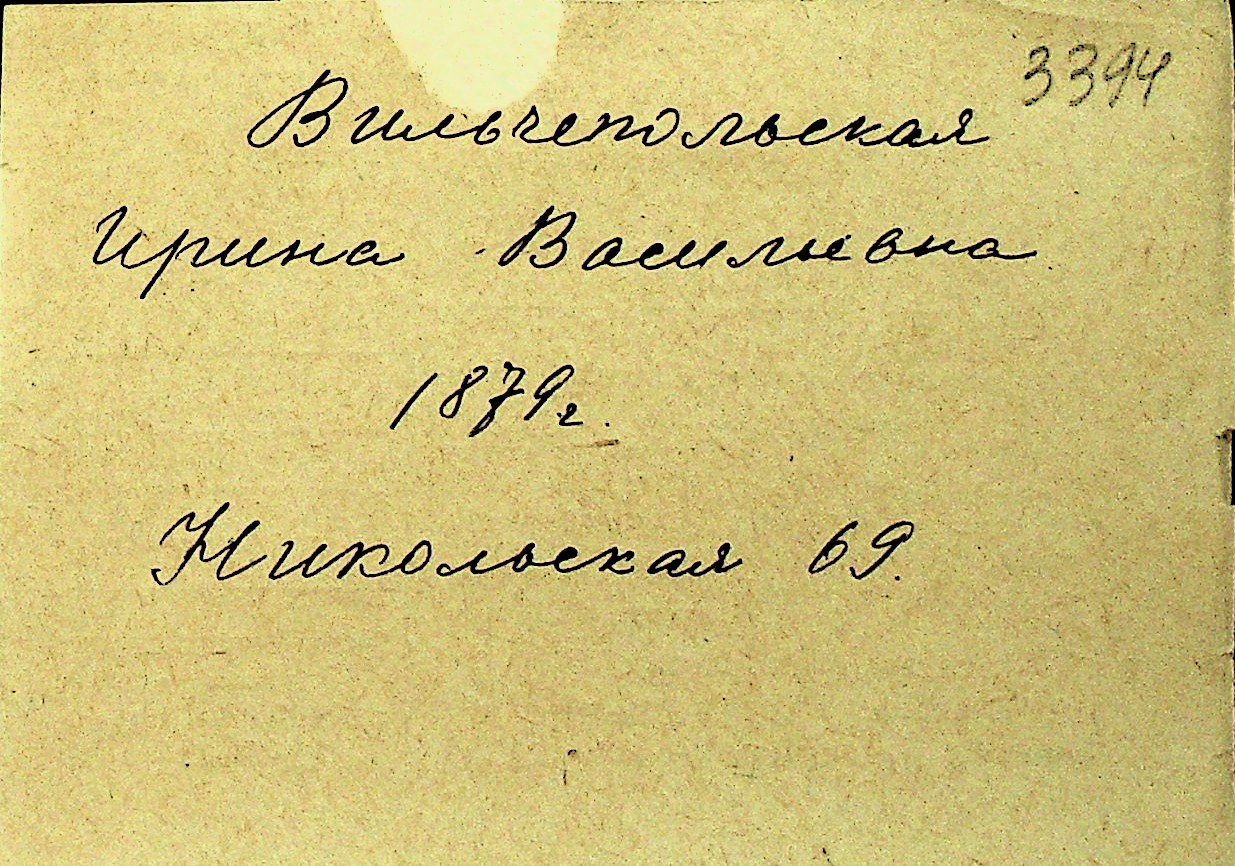 3394
Вильчепольская
Ирина Васильевна
1879г.
Никольская 69.